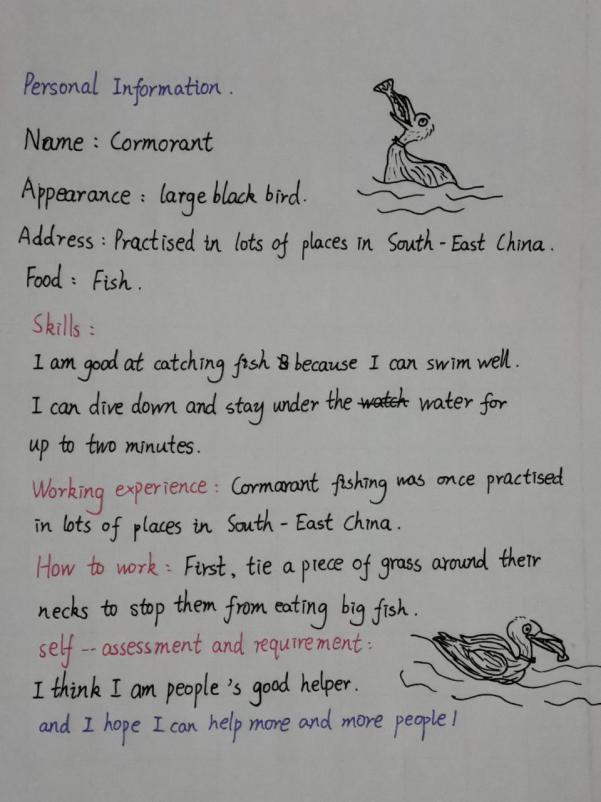 Personal Information.
Name : Cormorant
Appearance : large black bird.
Address : Practised in lots of places in South-East China.
Food : Fish.
Skills :
I am good at catching fish because I can swim well.
I can dive down and stay under the watch water for
up to two minutes.
Working experience : Cormorant fishing was once practised
in lots of places in South-East China.
How to work : First, tie a piece of grass around their
necks to stop them from eating big fish.
self--assessment and requirement :
I think I am people's good helper.
and I hope I can help more and more people!